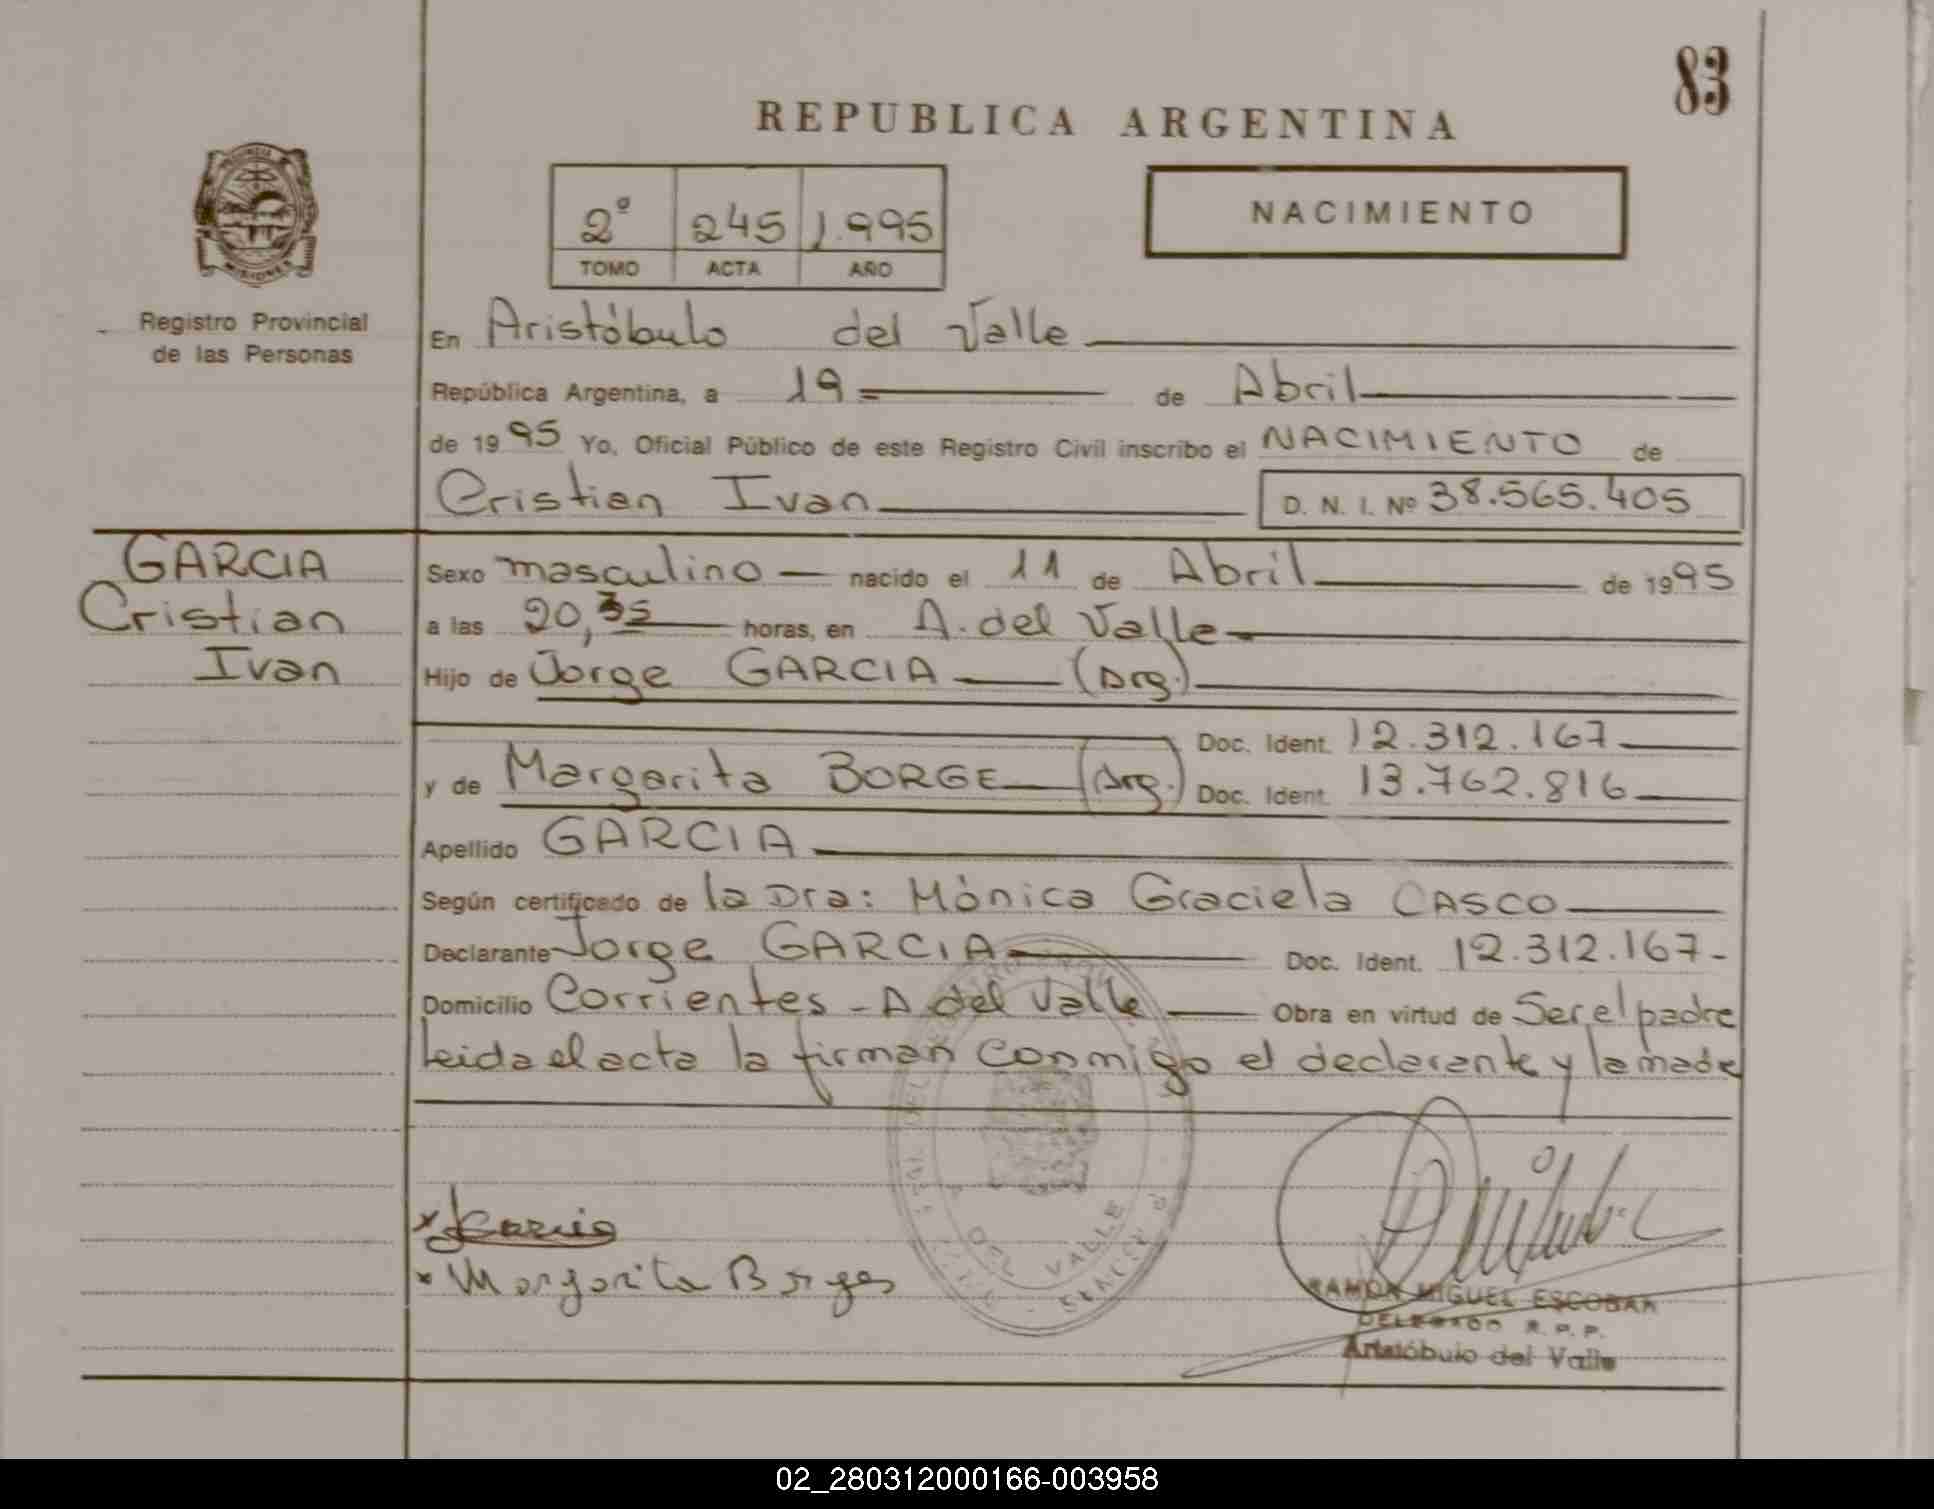 83
REPUBLICA ARGENTINA
2º 245 1.995
TOMO ACTA AÑO
NACIMIENTO
MISIONES
Registro Provincial
de las Personas
En Aristóbulo del Valle
República Argentina, a 19 de Abril
de 1995 Yo, Oficial Público de este Registro Civil inscribo el NACIMIENTO de
Cristian Ivan D. N. I. Nº 38.565.405
GARCIA
Cristian
Ivan
Sexo masculino nacido el 11 de Abril de 1995
a las 20,35 horas, en A. del Valle
Hijo de Jorge GARCIA (Arg.)
Doc. Ident. 12.312.167
y de Margarita BORGE (Arg.) Doc. Ident. 13.762.816
Apellido GARCIA
Según certificado de la Dra: Mónica Graciela CASCO
Declarante Jorge GARCIA Doc. Ident. 12.312.167-
Domicilio Corrientes - A del Valle Obra en virtud de Ser el padre
Leida el acta la firman conmigo el declarante y la madre
DEL VALLE
x Margarita Borges
RAMON MIGUEL ESCOBAR
DELEGADO R. P. P.
Aristóbulo del Valle
02_280312000166-003958